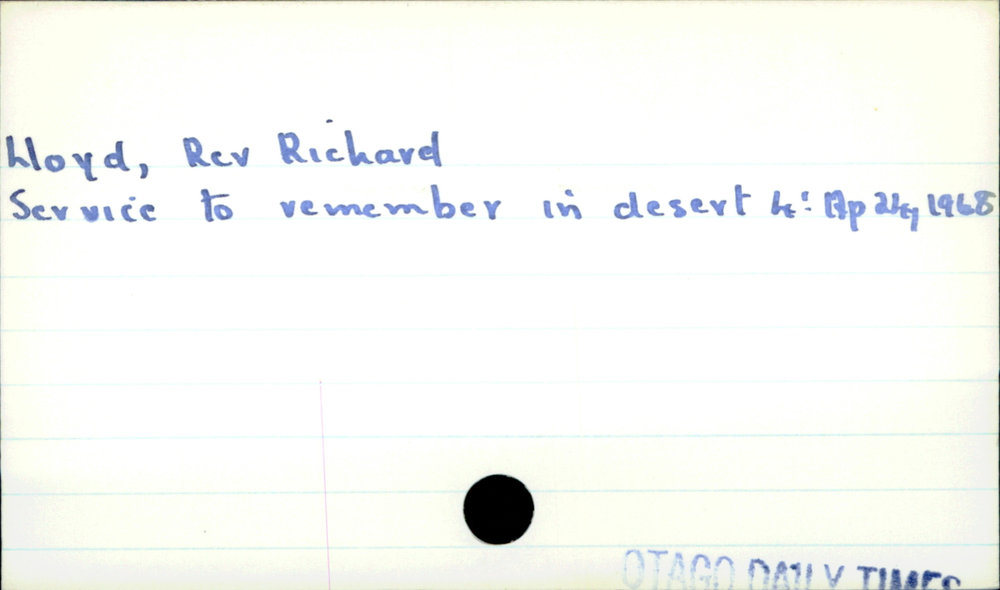 Lloyd, Rev Richard
Service to remember in desert 4: Ap 24, 1968
OTAGO DAILY TIMES